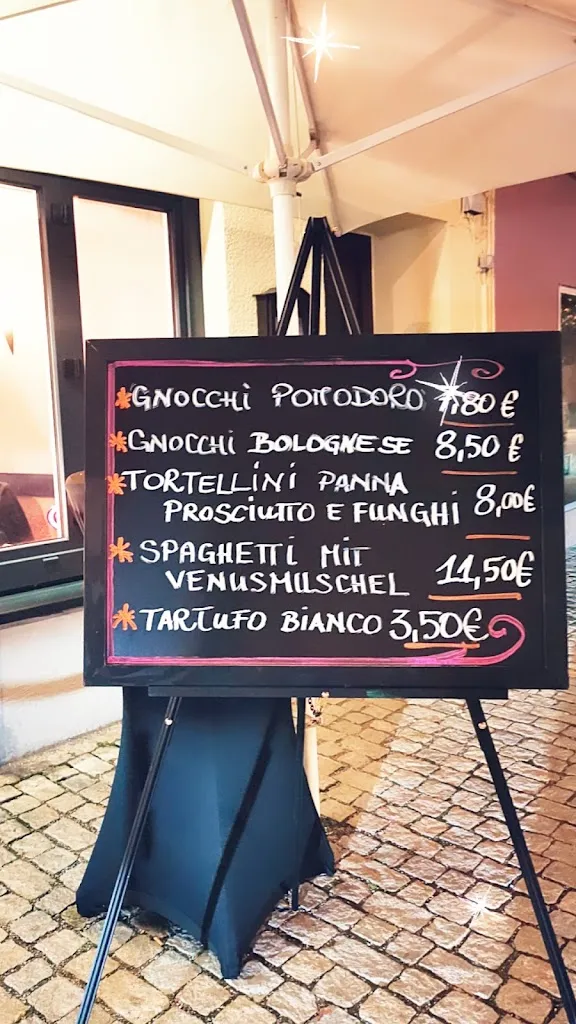 *GNOCCHI POMODORO ,80€
*GNOCCHI BOLOGNESE 8,50€
*TORTELLINI PANNA
PROSCIUTTO E FUNGHI 8,00€
*SPAGHETTI MIT
VENUSMUSCHEL 11,50€
*TARTUFO BIANCO 3,50€